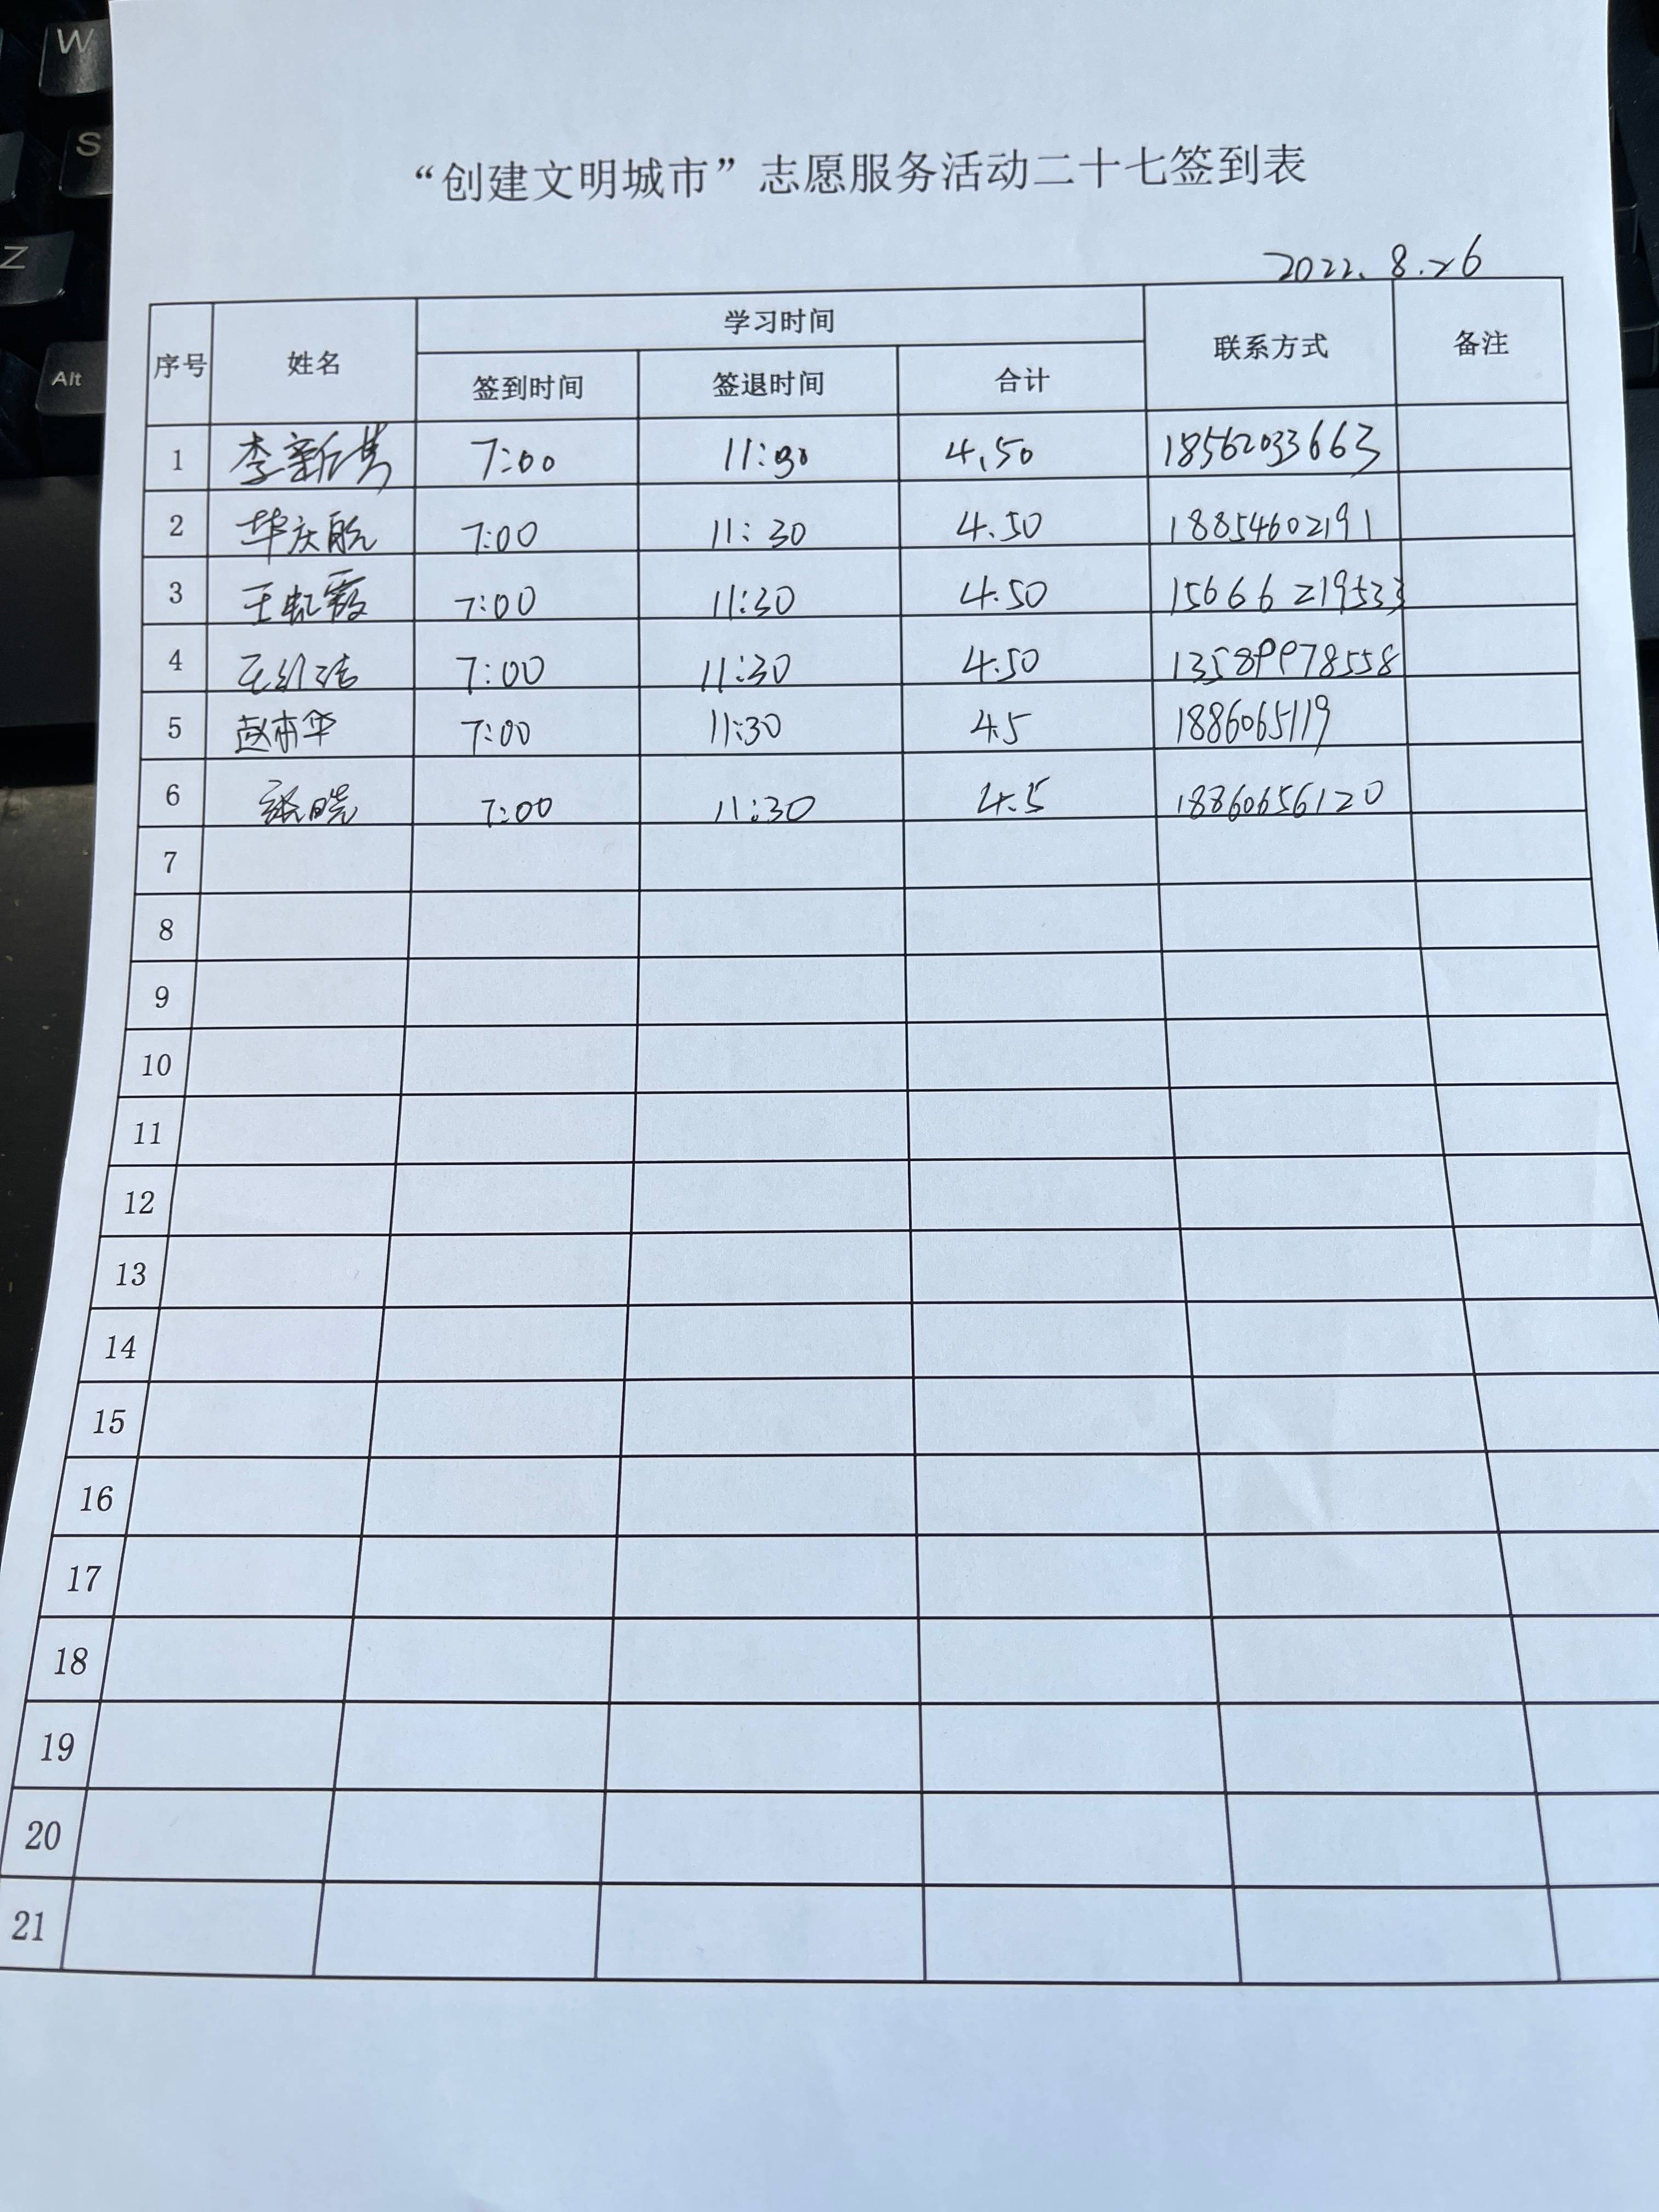 W
S
Z
Alt
“创建文明城市”志愿服务活动二十七签到表
2022. 8.26
序号 姓名 学习时间 联系方式 备注
签到时间 签退时间 合计
1 李新 7:00 11:30 4.50 18562033663
2 华庆航 7:00 11:30 4.50 18854602191
3 王虹霞 7:00 11:30 4.50 15666219533
4 王 7:00 11:30 4.50 13589978558
5 赵本华 7:00 11:30 4.5 1886065119
6 张晓 7:00 11:30 4.5 18860656120
7
8
9
10
11
12
13
14
15
16
17
18
19
20
21